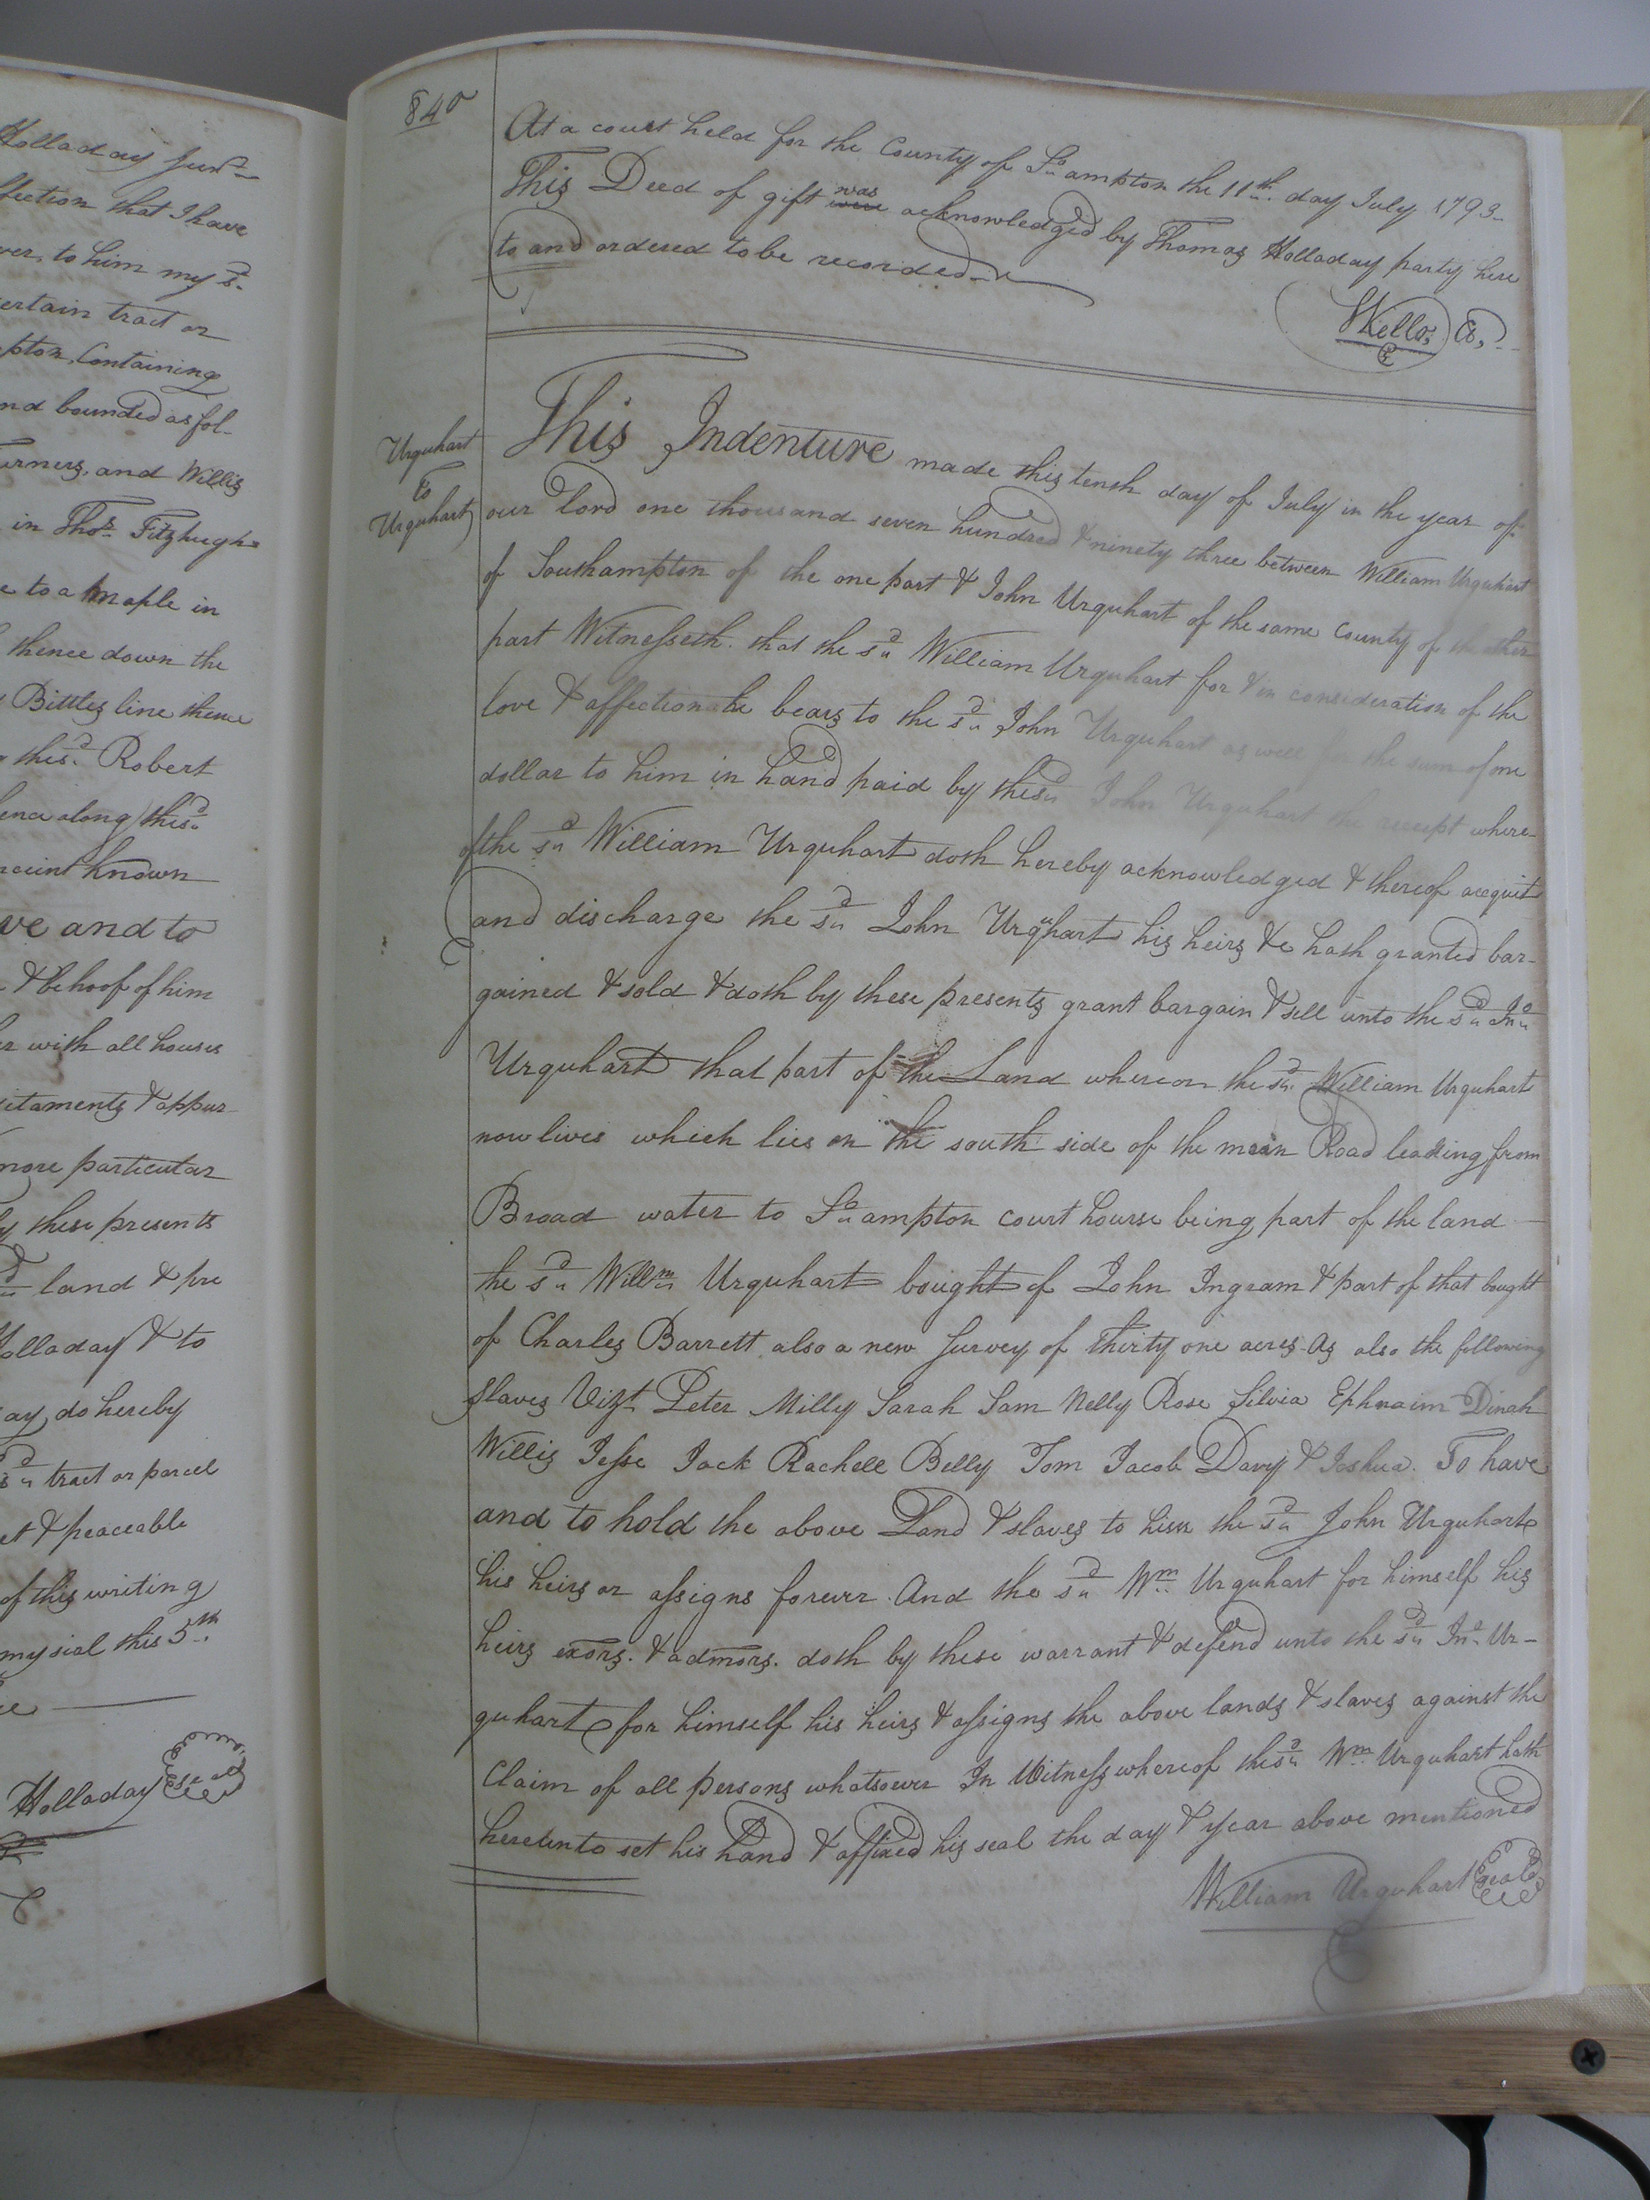 Holladay Junr
ffection that I have
ver, to him my sd
ertain tract or
pton, Containing
nd bounded as fol-
urners, and Willis
in Thos. Fitzhughs
e to a Maple in
thence down the
Bittles line thence
the sd. Robert
ence along the sd
ncient known
ve and to
& behoof of him
er with all houses
itaments & appur-
more particular
by these presents
d land & pre
Holladay & to
ay, do hereby
sd tract or parcel
et & peaceable
of this writing
my seal this 5th
Holladay Seal
840
At a court held for the County of So.ampton the 11th. day July 1793-
This Deed of gift was acknowledged by Thomas Holladay party here
to and ordered to be recorded
SKello, C.
Urquhart
to
Urquhart
This Indenture made this tenth day of July in the year of
our Lord one thousand seven hundred & ninety three between William Urquhart
of Southampton of the one part & John Urquhart of the same County of the other
part Witnesseth. that the sd William Urquhart for & in consideration of the
love & affection he bears to the sd John Urquhart as well for the sum of one
dollar to him in hand paid by the sd John Urquhart the receipt where-
of the sd William Urquhart doth hereby acknowledged & thereof acequit
and discharge the sd John Urquhart his heirs &c hath granted bar-
gained & sold & doth by these presents grant bargain & sell unto the sd Jno
Urquhart that part of the Land whereon the sd. William Urquhart
now lives which lies on the south side of the main Road leading from
Broad water to So.ampton court hourse being part of the land
the sd Willm Urquhart bought of John Ingram & part of that bought
of Charles Barrett also a new Survey of thirty one acres. As also the following
Slaves Vizt Peter Milly Sarah Sam Nelly Rose Silvia Ephraim Dinah
Willis Jesse Jack Rachell Belly Tom Jacob Davy & Joshua. To have
and to hold the above Land & slaves to him the sd John Urquhart
his heirs or assigns forever. And the sd Wm Urquhart for himself his
heirs exors. & admors. doth by these warrant & defend unto the sd Jno. Ur-
quhart for himself his heirs & assigns the above lands & slaves against the
Claim of all persons whatsoever In Witness whereof the sd Wm Urquhart hath
hereunto set his hand & affixed his seal the day & year above mentioned
William Urquhart Seal